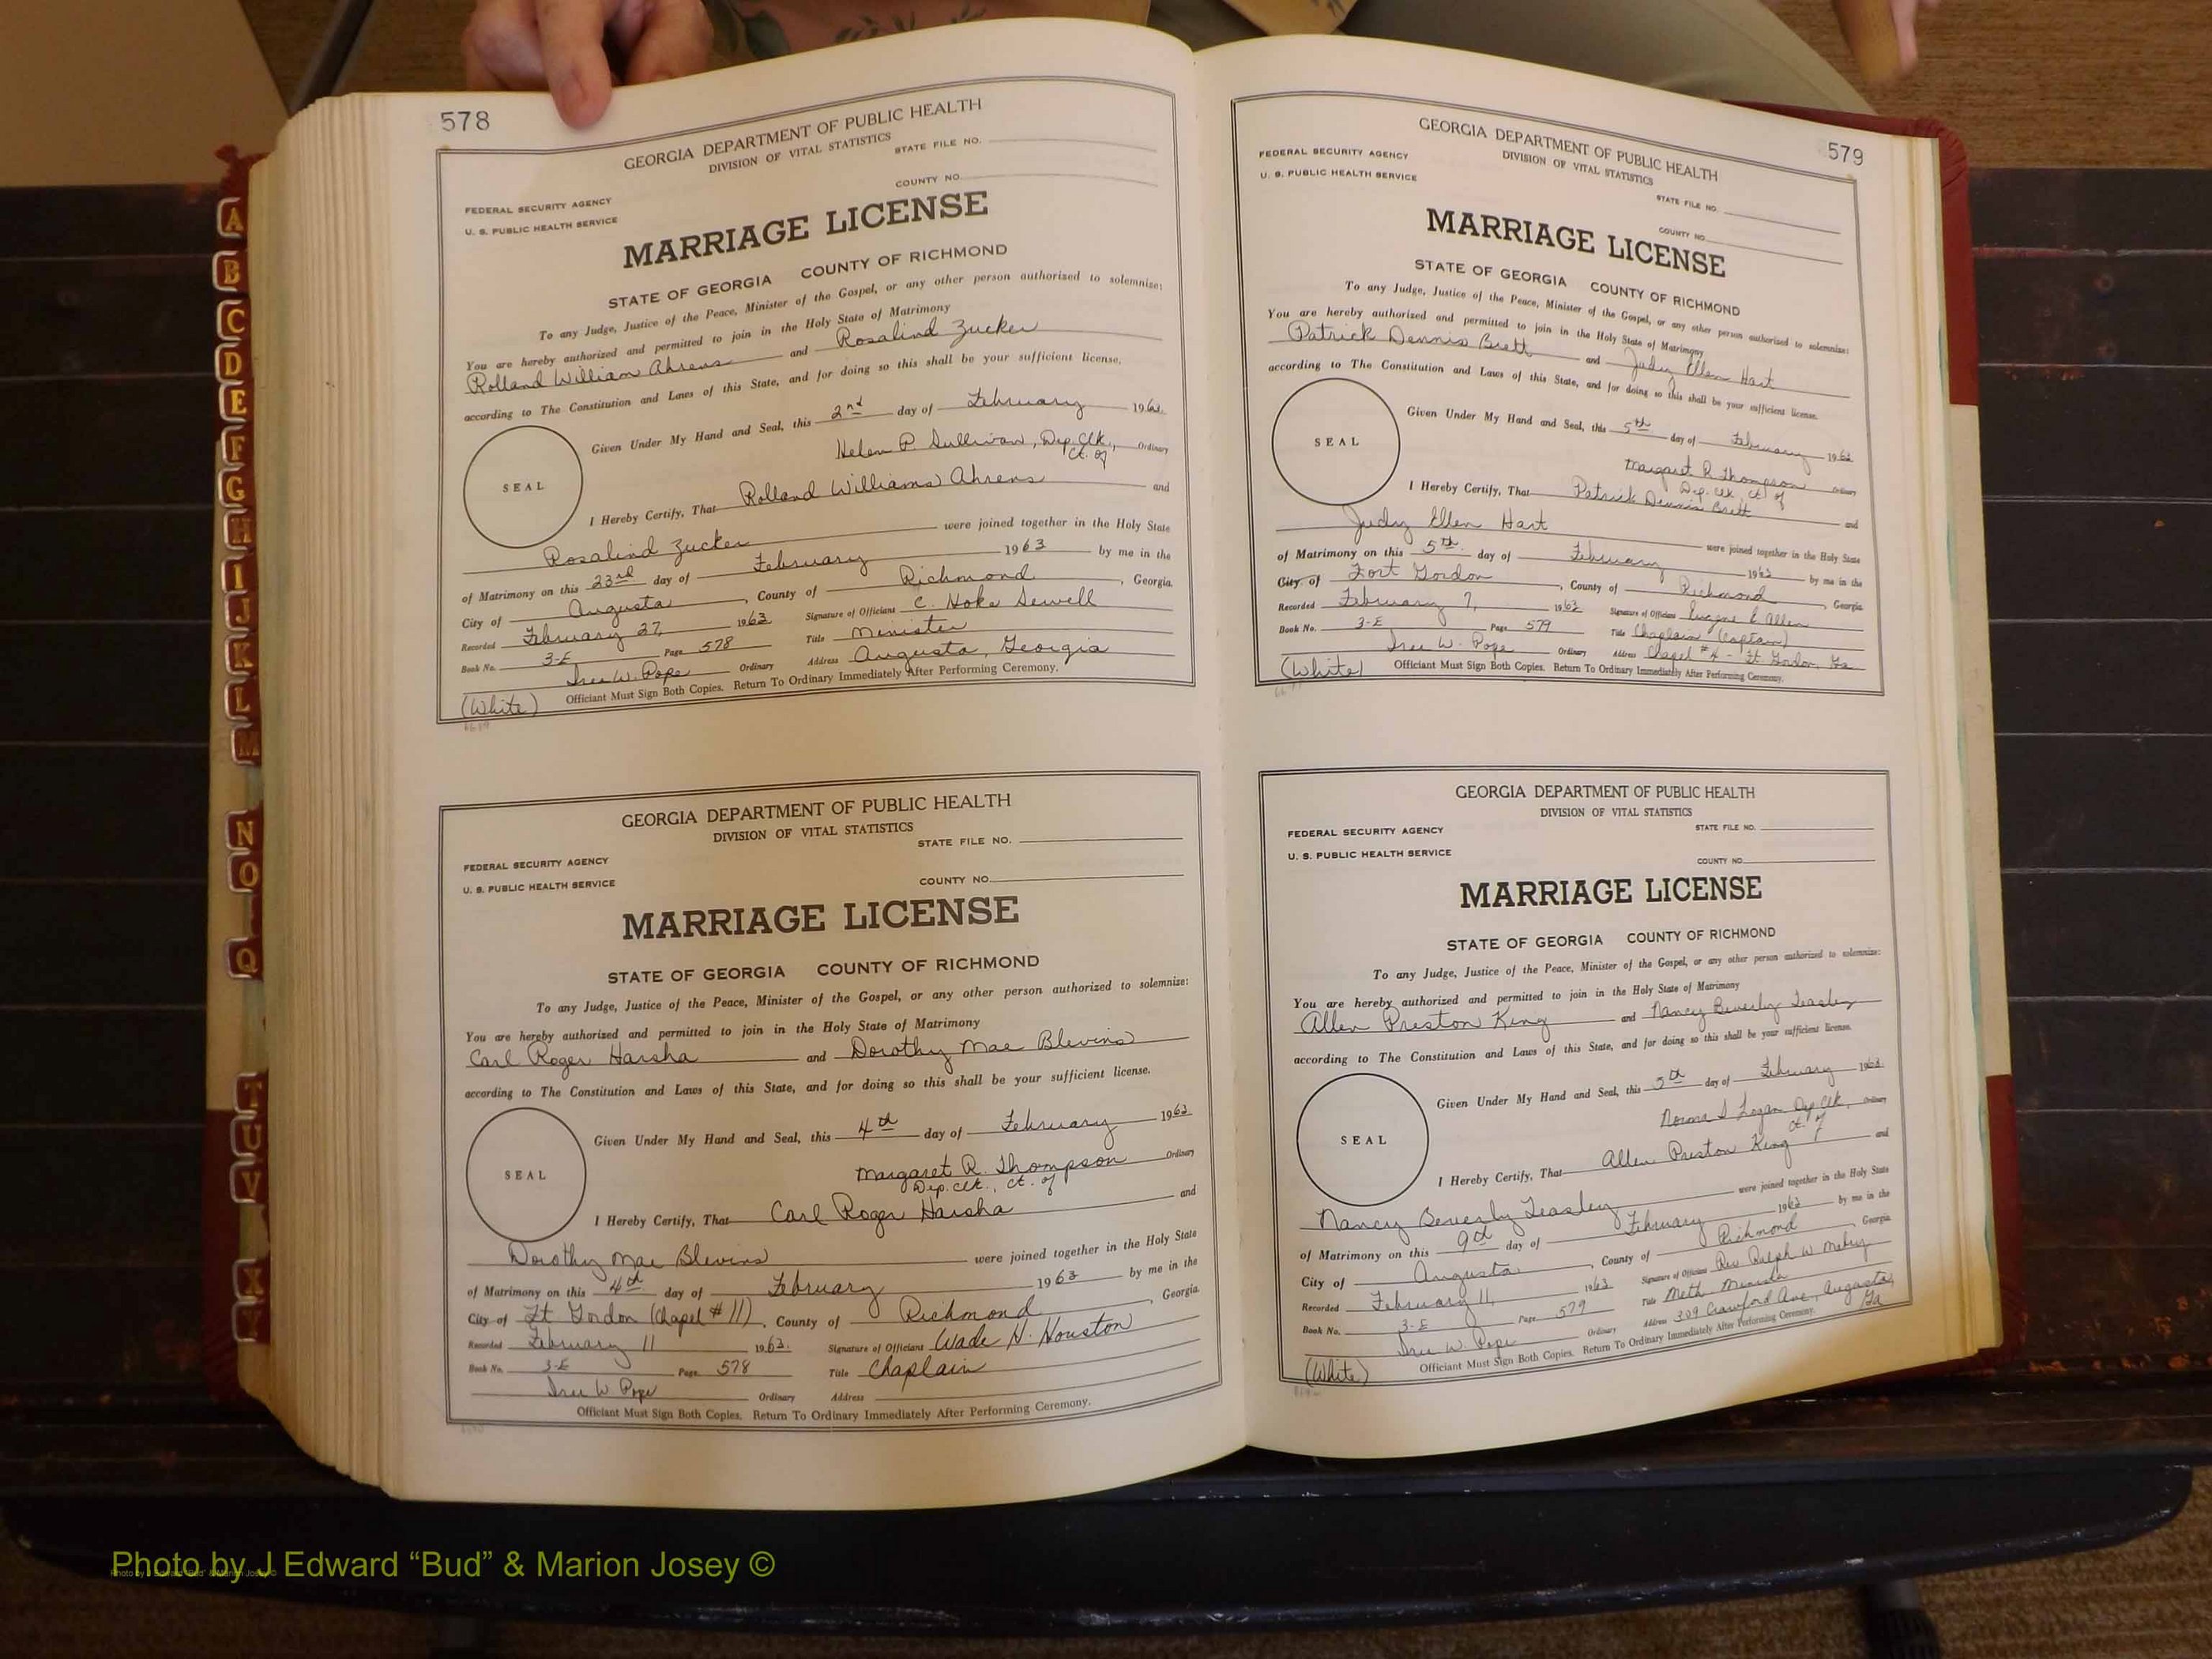 A
B
C
D
E
F
G
H
I
J
K
L
M
N
O
Q
T
U
V
X
Y
578
GEORGIA DEPARTMENT OF PUBLIC HEALTH
DIVISION OF VITAL STATISTICS
STATE FILE NO.
COUNTY NO.
FEDERAL SECURITY AGENCY
U. S. PUBLIC HEALTH SERVICE
MARRIAGE LICENSE
STATE OF GEORGIA COUNTY OF RICHMOND
To any Judge, Justice of the Peace, Minister of the Gospel, or any other person authorized to solemnize:
You are hereby authorized and permitted to join in the Holy State of Matrimony
Rolland William Ahrens and Rosalind Zucker
according to The Constitution and Laws of this State, and for doing so this shall be your sufficient license.
Given Under My Hand and Seal, this 2nd day of February 1963.
Helen P. Sullivan, Dep. Clk., Ordinary
Ct. of
SEAL
I Hereby Certify, That Rolland Williams Ahrens and
Rosalind Zucker were joined together in the Holy State
of Matrimony on this 23rd day of February 1963 by me in the
City of Augusta, County of Richmond, Georgia.
Recorded February 27, 1963 Signature of Officiant C. Hoke Sewell
Book No. 3-E Page 578 Title Minister
W. Pope Ordinary Address Augusta, Georgia
(White) Officiant Must Sign Both Copies. Return To Ordinary Immediately After Performing Ceremony.
GEORGIA DEPARTMENT OF PUBLIC HEALTH
DIVISION OF VITAL STATISTICS
STATE FILE NO.
FEDERAL SECURITY AGENCY
U. S. PUBLIC HEALTH SERVICE
COUNTY NO.
MARRIAGE LICENSE
STATE OF GEORGIA COUNTY OF RICHMOND
To any Judge, Justice of the Peace, Minister of the Gospel, or any other person authorized to solemnize:
You are hereby authorized and permitted to join in the Holy State of Matrimony
Carl Roger Harsha and Dorothy Mae Blevins
according to The Constitution and Laws of this State, and for doing so this shall be your sufficient license.
Given Under My Hand and Seal, this 4th day of February 1963
Margaret R. Thompson Ordinary
Dep. Clk., Ct. of
SEAL
I Hereby Certify, That Carl Roger Harsha and
Dorothy Mae Blevins were joined together in the Holy State
of Matrimony on this 4th day of February 1963 by me in the
City of Ft Gordon (Chapel # 11), County of Richmond, Georgia.
Recorded February 11 1963. Signature of Officiant Wade H. Houston
Book No. 3-E Page 578 Title Chaplain
W. Pope Ordinary Address
Officiant Must Sign Both Copies. Return To Ordinary Immediately After Performing Ceremony.
579
GEORGIA DEPARTMENT OF PUBLIC HEALTH
DIVISION OF VITAL STATISTICS
FEDERAL SECURITY AGENCY
U. S. PUBLIC HEALTH SERVICE
STATE FILE NO.
COUNTY NO.
MARRIAGE LICENSE
STATE OF GEORGIA COUNTY OF RICHMOND
To any Judge, Justice of the Peace, Minister of the Gospel, or any other person authorized to solemnize:
You are hereby authorized and permitted to join in the Holy State of Matrimony
Patrick Dennis Brett and Judy Ellen Hart
according to The Constitution and Laws of this State, and for doing so this shall be your sufficient license.
Given Under My Hand and Seal, this 5th day of February 1963
Margaret R Thompson Ordinary
Dep. Clk, Ct of
SEAL
I Hereby Certify, That Patrick Dennis Brett and
Judy Ellen Hart were joined together in the Holy State
of Matrimony on this 5th. day of February 1963 by me in the
City of Fort Gordon, County of Richmond, Georgia
Recorded February 7, 1963 Signature of Officiant Eugene E Allen
Book No. 3-E Page 579 Title Chaplain (Captain)
W. Pope Ordinary Address Chapel #4 - Ft Gordon, Ga
(White) Officiant Must Sign Both Copies. Return To Ordinary Immediately After Performing Ceremony.
GEORGIA DEPARTMENT OF PUBLIC HEALTH
DIVISION OF VITAL STATISTICS
FEDERAL SECURITY AGENCY
STATE FILE NO.
U. S. PUBLIC HEALTH SERVICE
COUNTY NO.
MARRIAGE LICENSE
STATE OF GEORGIA COUNTY OF RICHMOND
To any Judge, Justice of the Peace, Minister of the Gospel, or any other person authorized to solemnize:
You are hereby authorized and permitted to join in the Holy State of Matrimony
Allen Preston King and Nancy Beverly Teasley
according to The Constitution and Laws of this State, and for doing so this shall be your sufficient license.
Given Under My Hand and Seal, this 5th day of February 1963
Norma S Logan Dep Clk, Ordinary
Ct. of
SEAL
I Hereby Certify, That Allen Preston King and
Nancy Beverly Teasley were joined together in the Holy State
of Matrimony on this 9th day of February 1963 by me in the
City of Augusta, County of Richmond Georgia
Recorded February 11, 1963 Signature of Officiant Rev Ralph W
Book No. 3-E Page 579 Title Meth. Minister
W. Pope Ordinary Address 309 Crawford Ave, Augusta, Ga
(White) Officiant Must Sign Both Copies. Return To Ordinary Immediately After Performing Ceremony.
Photo by J Edward “Bud” & Marion Josey ©
Photo by J Edward "Bud" & Marion Josey ©